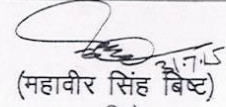 31.7.15
(महावीर सिंह बिष्ट)